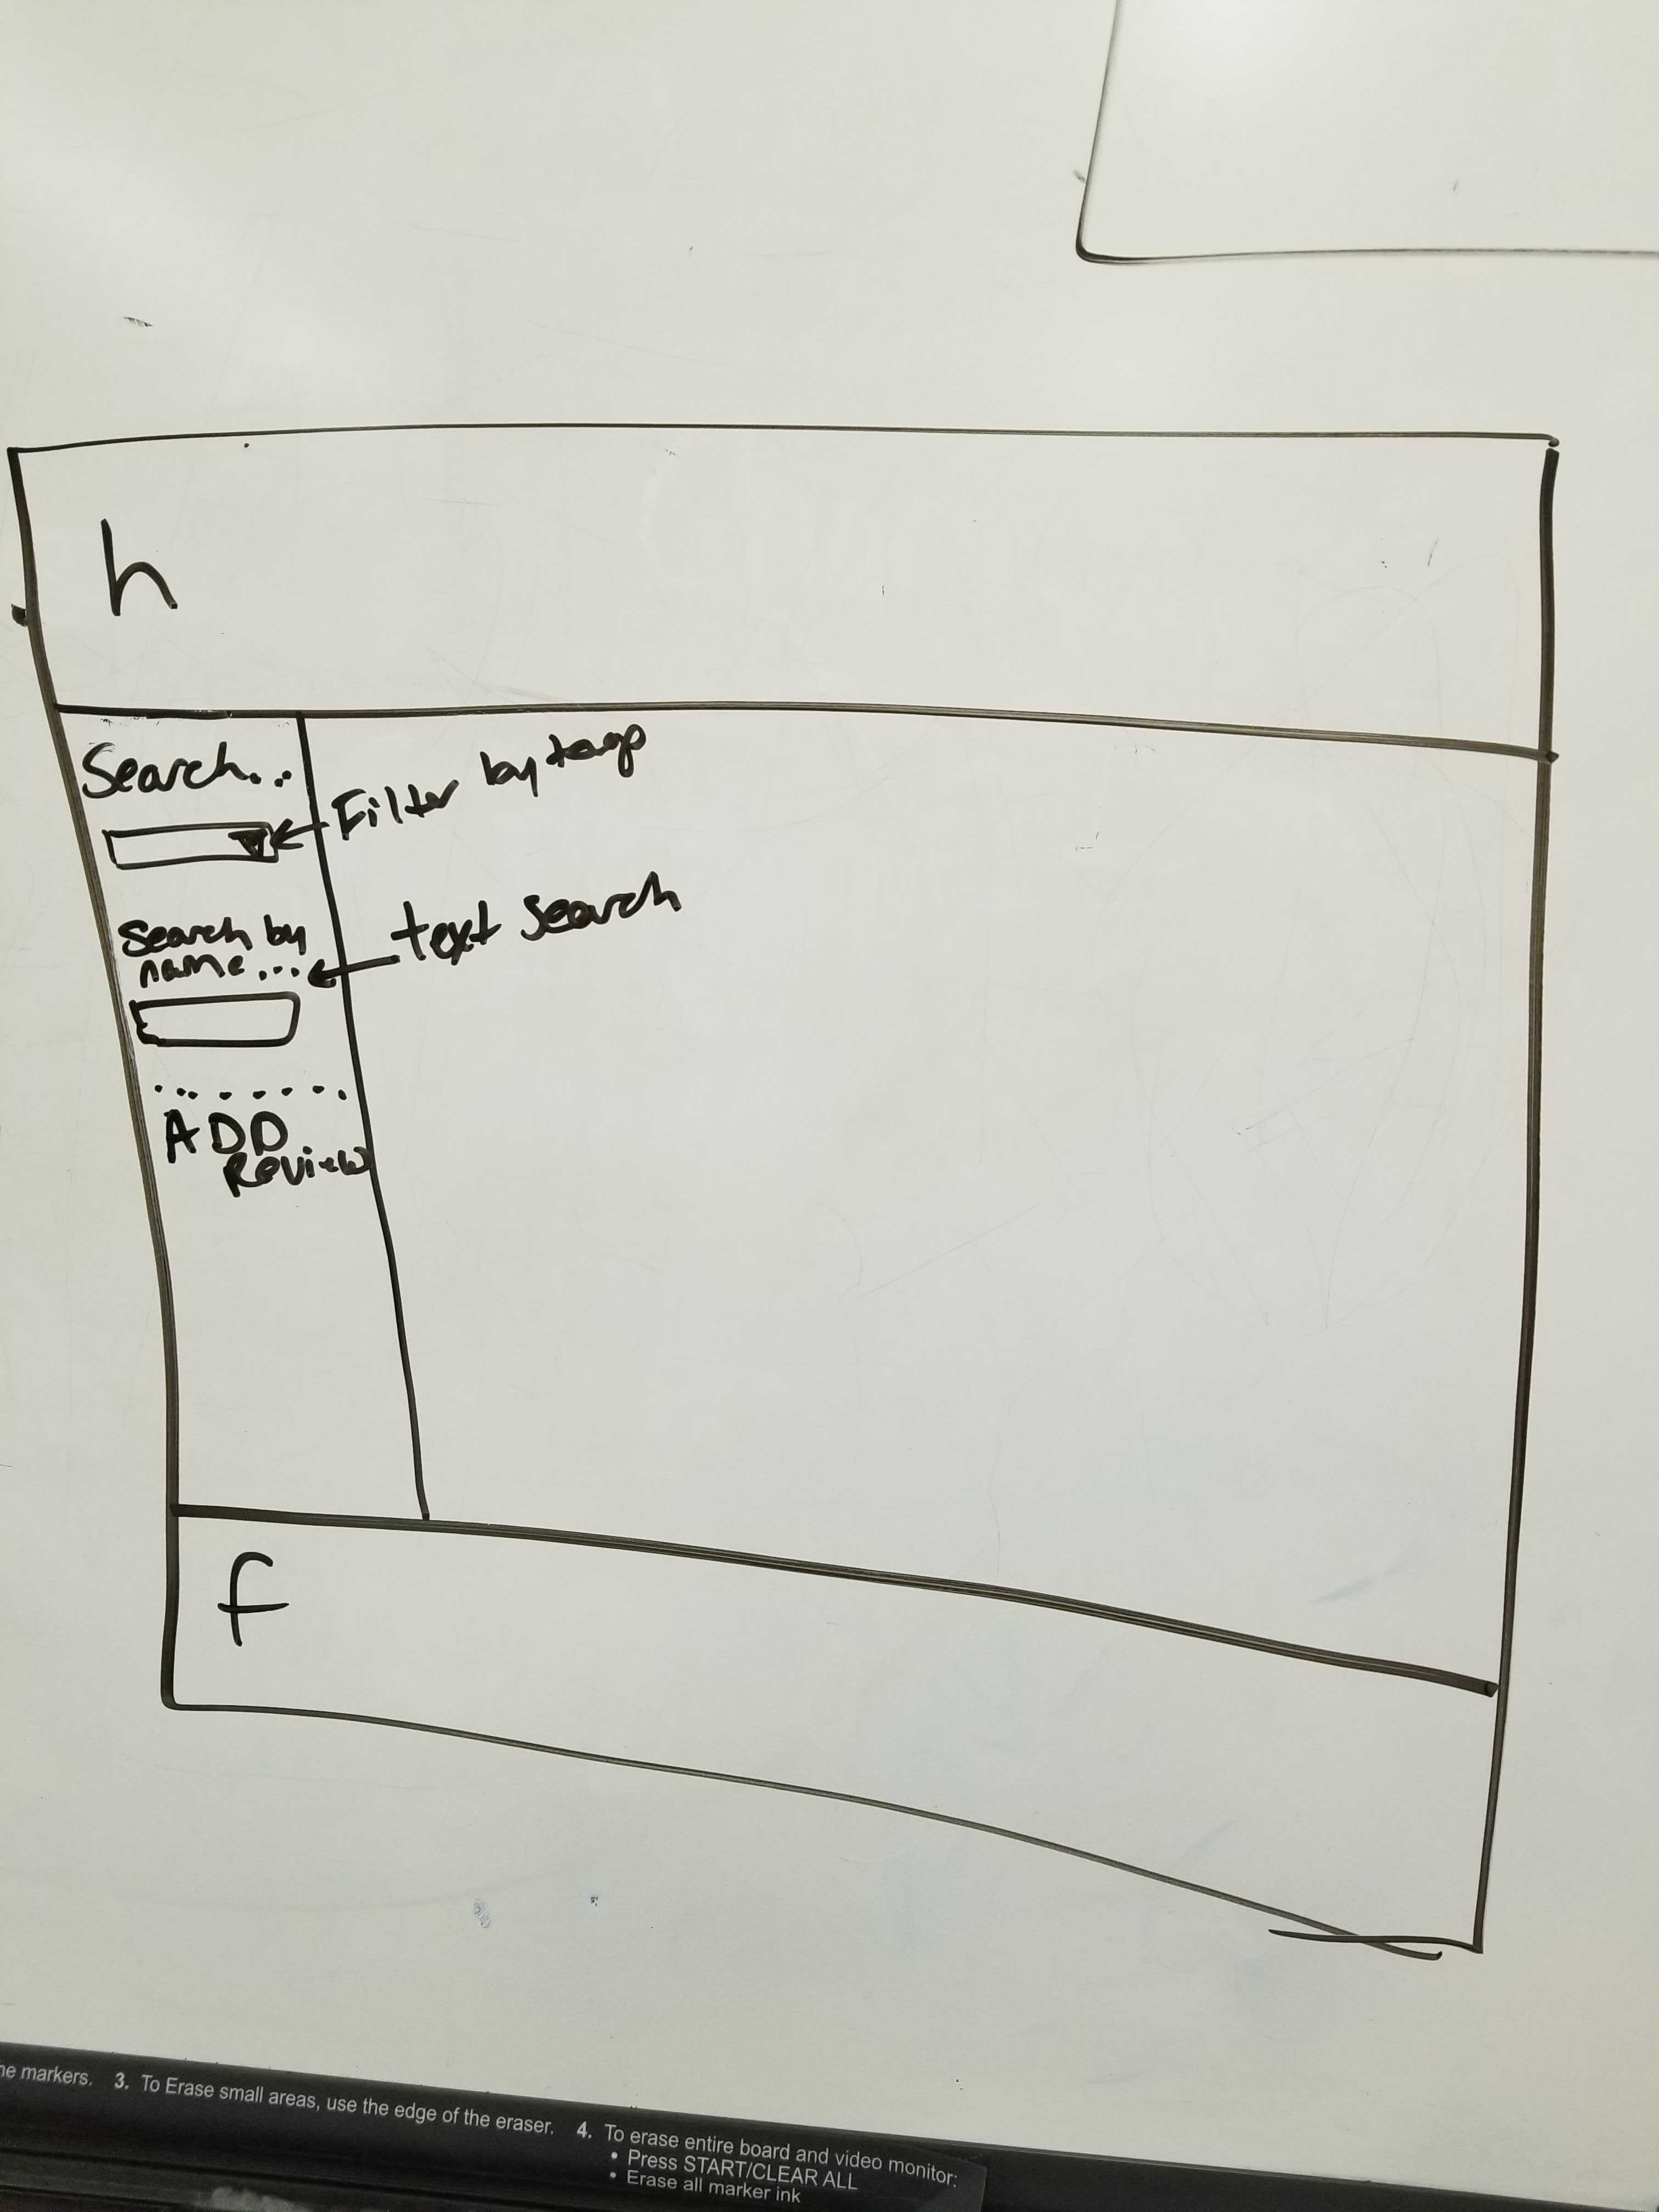 h
Search...
Filter by tags
Search by
name...
text search
ADD
Review
f
he markers. 3. To Erase small areas, use the edge of the eraser. 4. To erase entire board and video monitor:
• Press START/CLEAR ALL
• Erase all marker ink